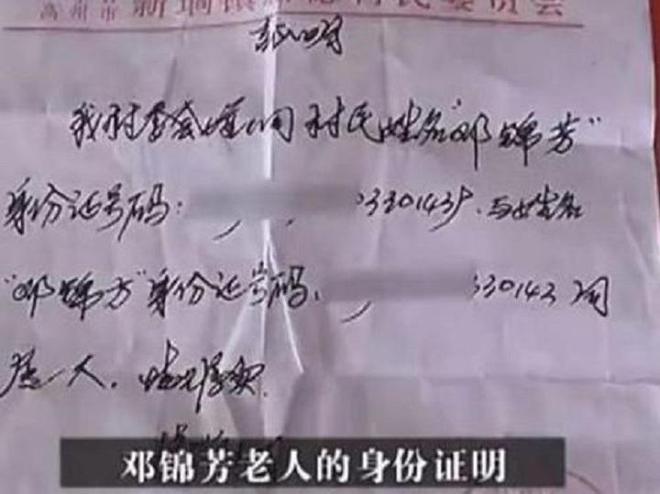 高州市 新垌镇 村民委员会
证明
我村委会 村民姓名"邓锦芳"
身份证号码: 330143 与姓名
"邓锦方"身份证号码: 330143 同
属一人,情况属实.
邓锦芳老人的身份证明